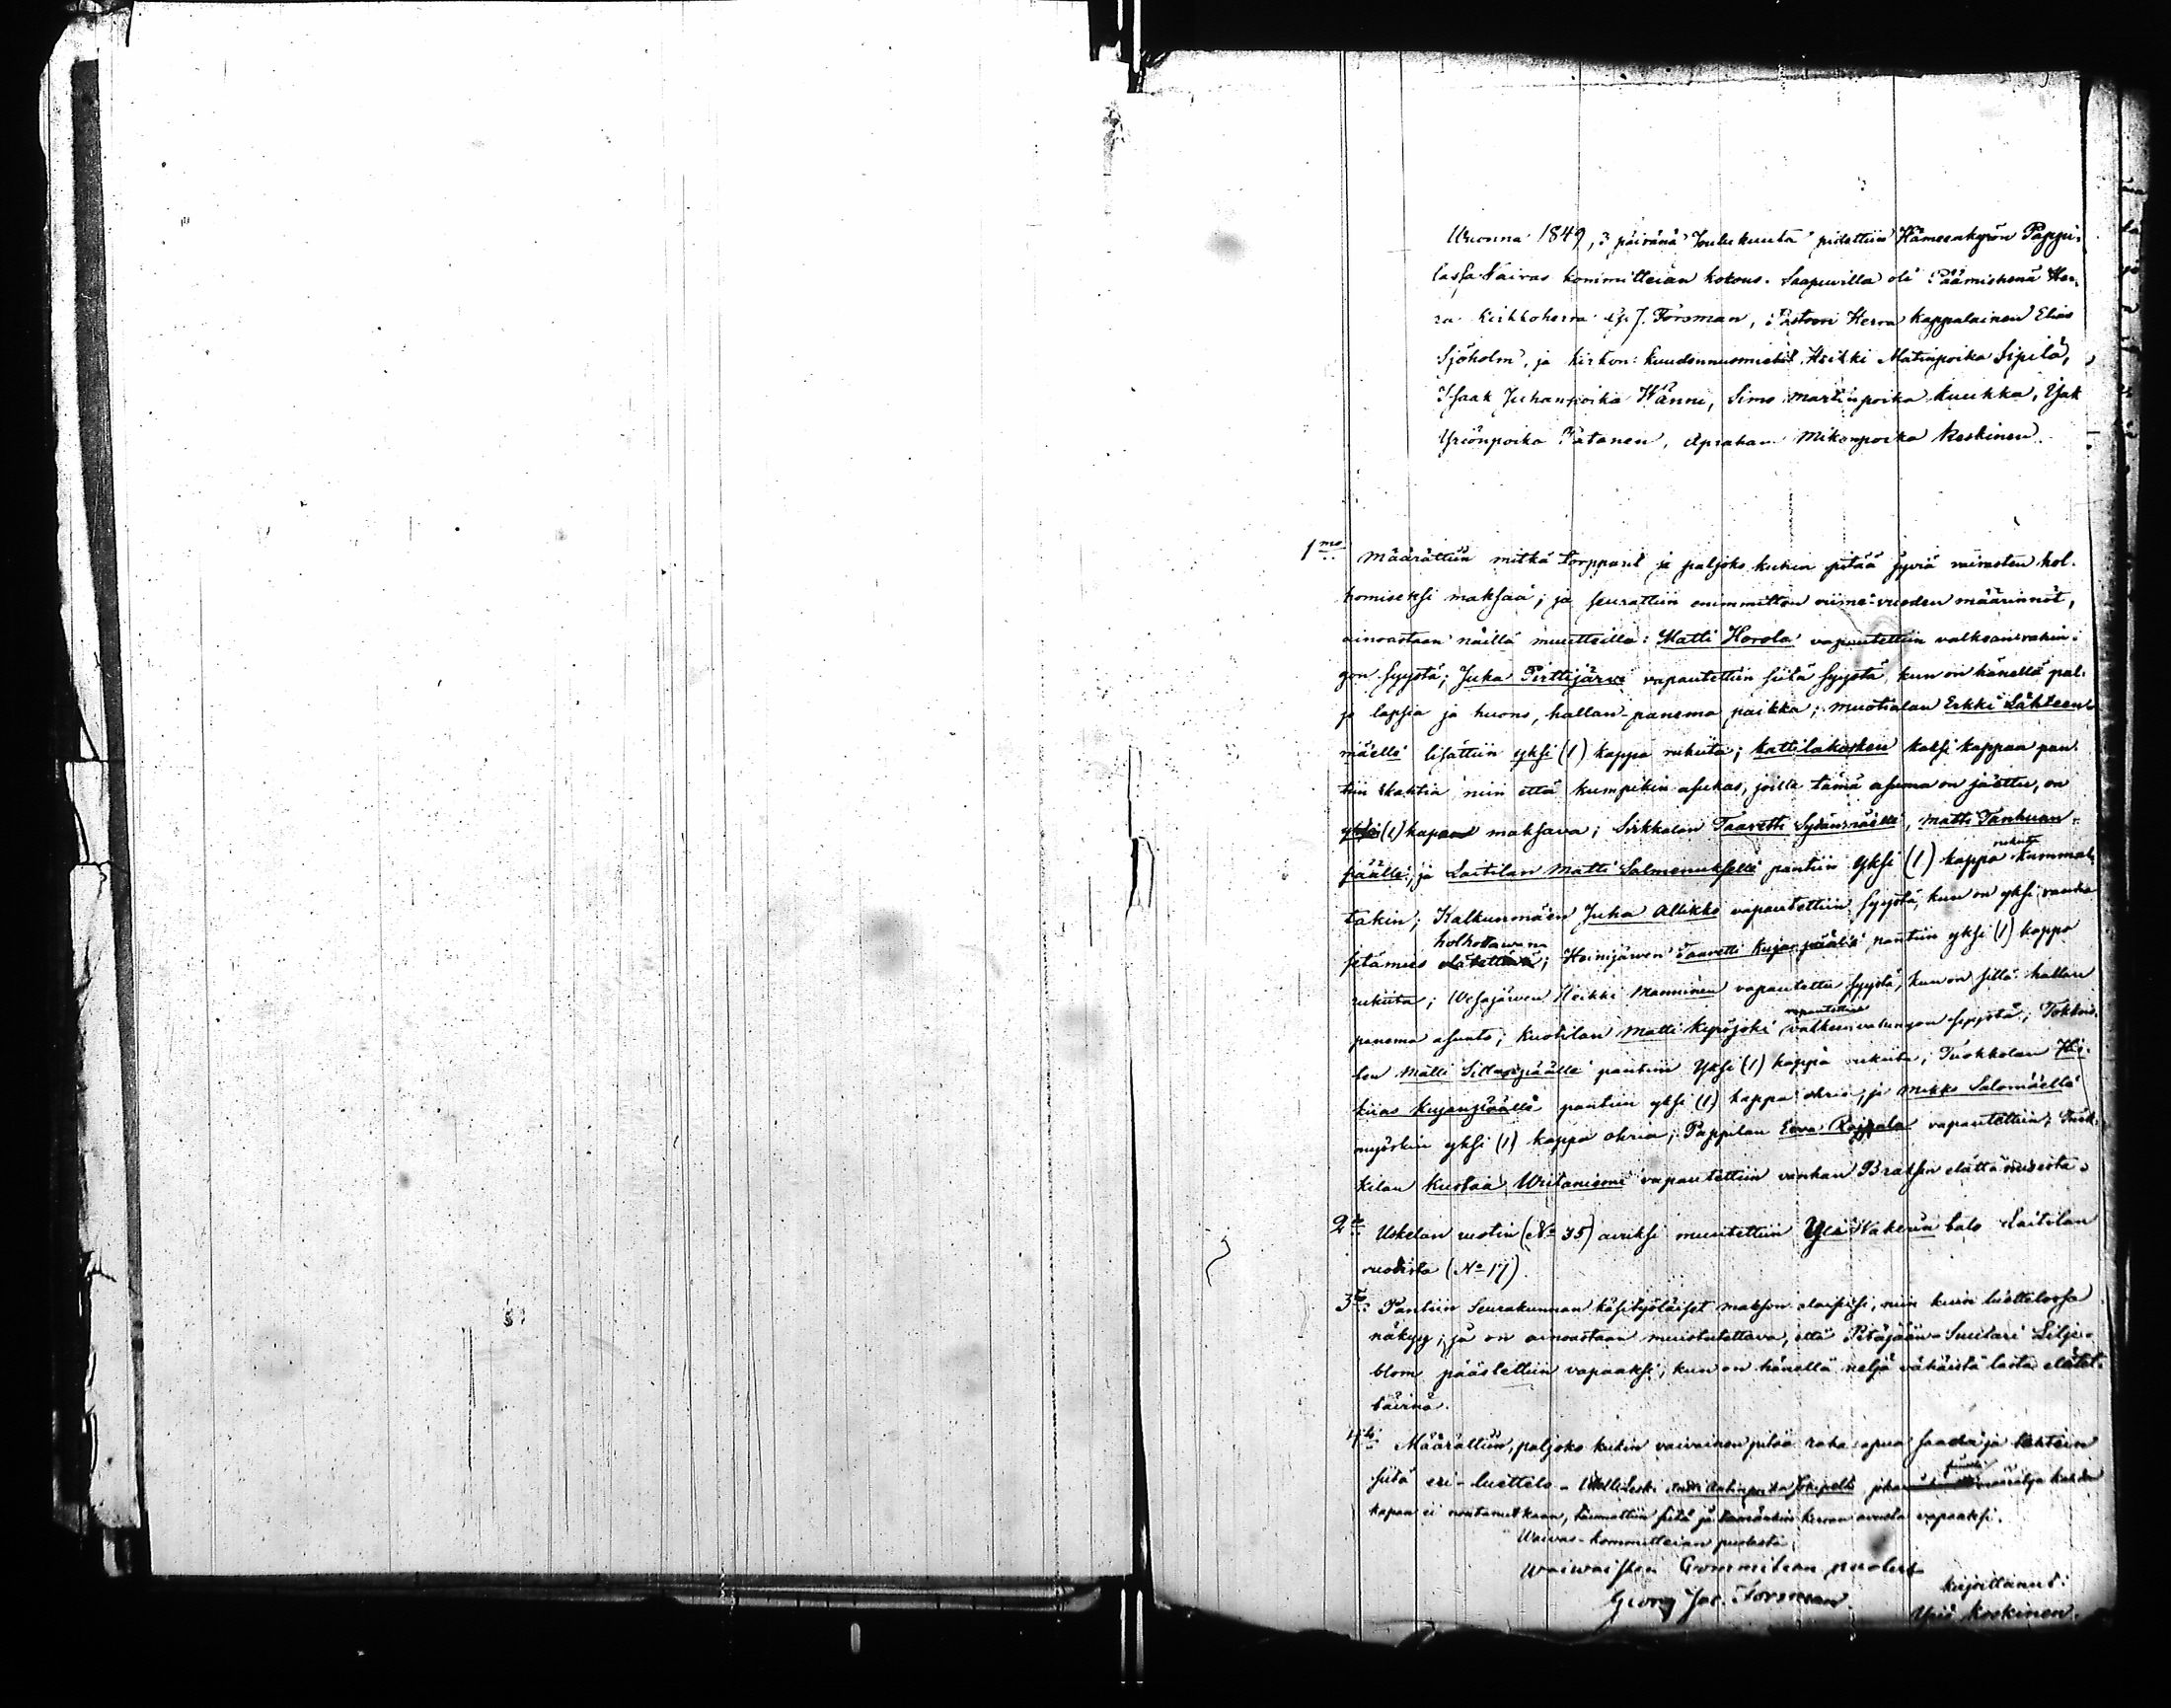 Wuonna 1849, 3 päivänä Joulukuuta pidettiin Hämeenkyrön Pappi-
lassa Vaivas kommitteian kokous. Saapuvilla oli Päämiehenä Her-
ra Kirkkoherra J. Forsman, Pastori Herra Kappalainen Elias
Sjöholm, ja kirkon kuudennusmiehet Heikki Matinpoika Sipilä,
Isaak Juhanpoika Wänni, Simo Martinpoika Kuukka, Isak
Yriönpoika Patanen, Apraham Mikonpoika Keskinen.
1mo Määrättiin mitkä torpparit ja paljoko kukin pitää jyviä vaivasten hol-
homiseksi maksaa; ja seurattiin enimmitten viime-vuoden määrinnöt,
ainoastaan näillä muutteilla: Matti Horola vapautettiin valkeanvahin-
gon syystä; Juha Pirttijärvi vapautettiin siitä syystä, kun on hänellä pal-
jo lapsia ja huono, hallan-panema paikka; Muotialan Erkki Lähteen-
mäelle lisättiin yksi (1) kappa rukiita; Kattilakosken kaksi kappaa pan-
tiin kahtia niin että kumpikin asukas, joille tämä asuma on jäetty, on
yksi (1) kapan maksava; Sirkkalan Taavetti Sydänmäelle, Matti Tanhuan-
päälle, ja Laitilan Matti Salmenukselle pantiin yksi (1) kappa rukiita kummal-
takin; Kalkunmäen Juha Allikko vapautettiin syystä, kun on yksi vanha
setämies elätettävä holhottavana; Heinijärven Taavetti Kujanpäälle pantiin yksi (1) kappa
rukiita; Wesajärven Heikki Manninen vapautettu syystä, kun on sillä hallan
panema asunto; Kuotilan Matti Kyröjoki vapautettiin valkeanvahingon syystä; Tokkois-
ten Matti Sillanpäälle pantiin yksi (1) kappa rukiita; Tuokkolan His-
kiias Kujanpäälle pantiin yksi (1) kappa ohria, ja Mikko Salomäelle
myöskin yksi (1) kappa ohria; Pappilan Eeva Rajjala vapautettiin;
kilan Kustaa vapautettiin vanhan elättämisestä.
2o Uskelan ruotin (No 35) avuksi muutettiin Yli Wakerin talo Laitilan
ruodista (No 17).
3o Pantiin Seurakunnan käsityöläiset makson alaisiksi, niin kuin luettelossa
näkyy; ja on ainoastaan muistutettava, että Pitäjään-Suutari Lilje-
blom päästettiin vapaaksi, kun on hänellä neljä vähäistä lasta elätet-
tävinä.
4to Määrättiin, paljoko kukin vaivainen pitää raha-apua saada ja tehtiin
siitä eri-luettelo.
kapaa ei nontanutkaan, tuomittiin siitä ja tämänkin kerran avusta vapaaksi.
Waivas-kommitteian puolesta
Waiwaisten Committean puolest
Georg Jac. Forsman kirjoittanut:
Yriö Koskinen.